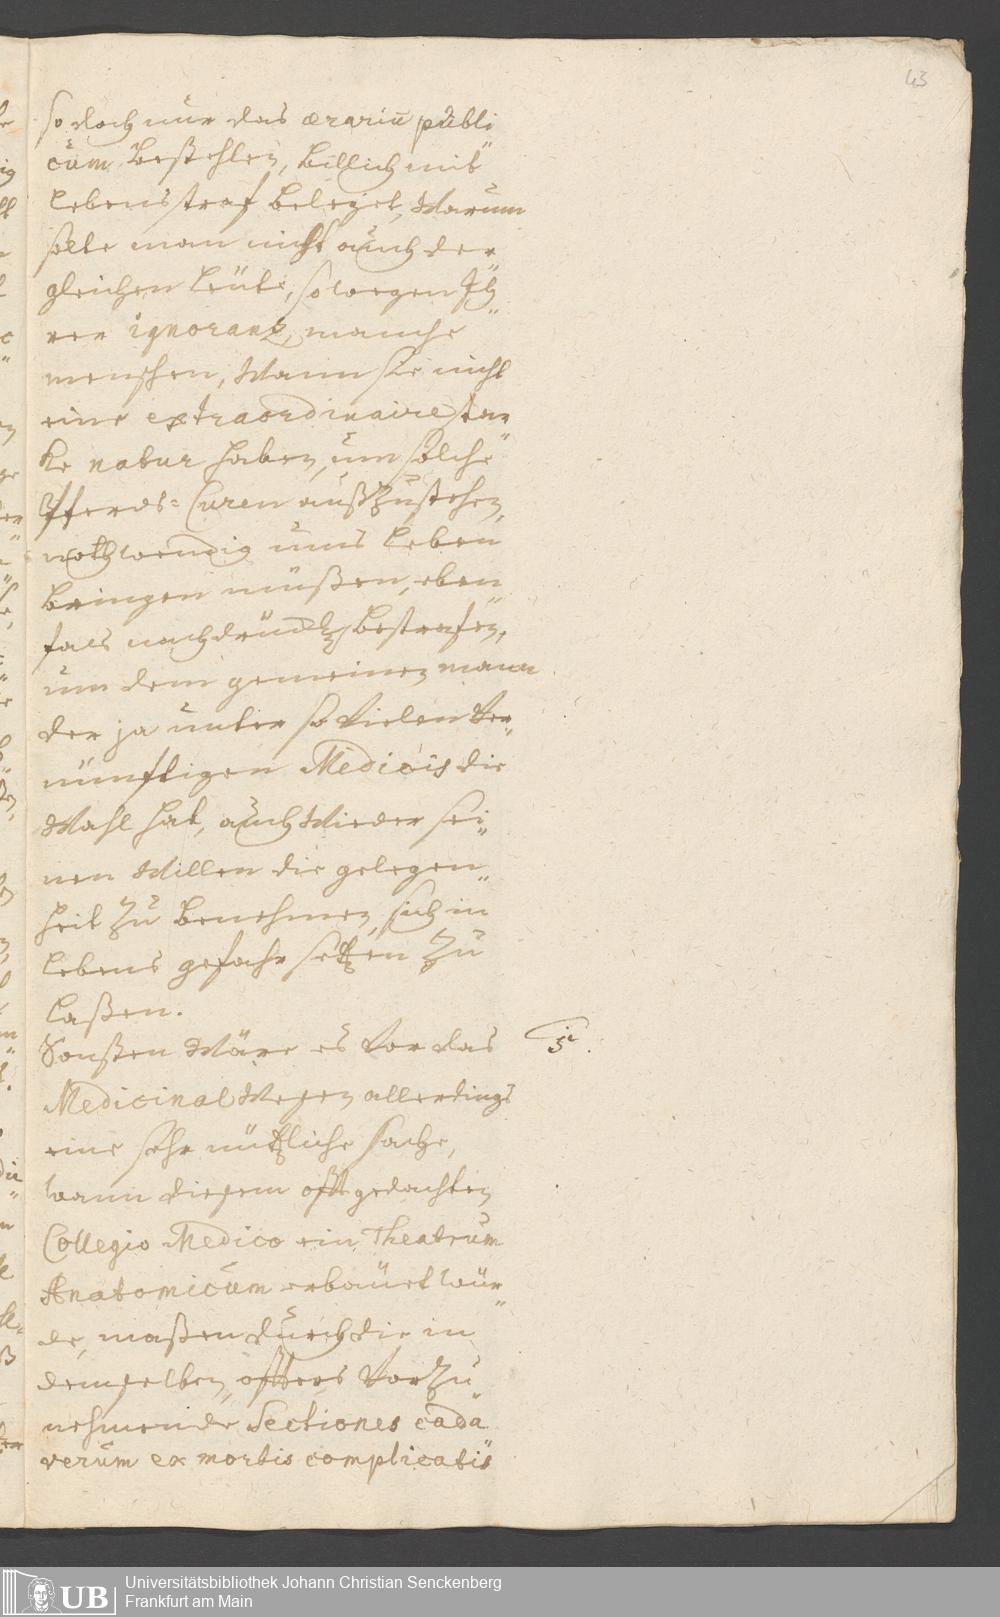 43
so doch nur das ærariū publi„
cum bestehlen, billich mit
lebens straf beleget, Warum
solte man nicht auch der„
gleichen leüte, so wegen Ih„
rer ignorantz, manche
menschen, Wann sie nicht
eine extraordinaire star„
ke natur haben, um solche
Pferds=Curen außzustehen,
nothwendig ums leben
bringen müßen, eben„
fals nachdrückl. bestrafen,
um dem gemeinen mann
der ja unter so vielen ver„
nünftigen Medicis die
Wahl hat, auch Wieder sei„
nen Willen die gelegen„
heit zu benehmen, sich in
lebens gefahr setzen zu
laßen.
Sonsten Wäre es vor das
Medicinal Wesen allerdings
eine sehr nützliche sache,
wann diesem offt gedachten
Collegio Medico ein Theatrum
Anatomicum erbauet wür„
de, maßen durch die in
demselben offters vorzu„
nehmende Sectiones cada„
verum ex morbis complicatis
Universitätsbibliothek Johann Christian Senckenberg
Frankfurt am Main
UB